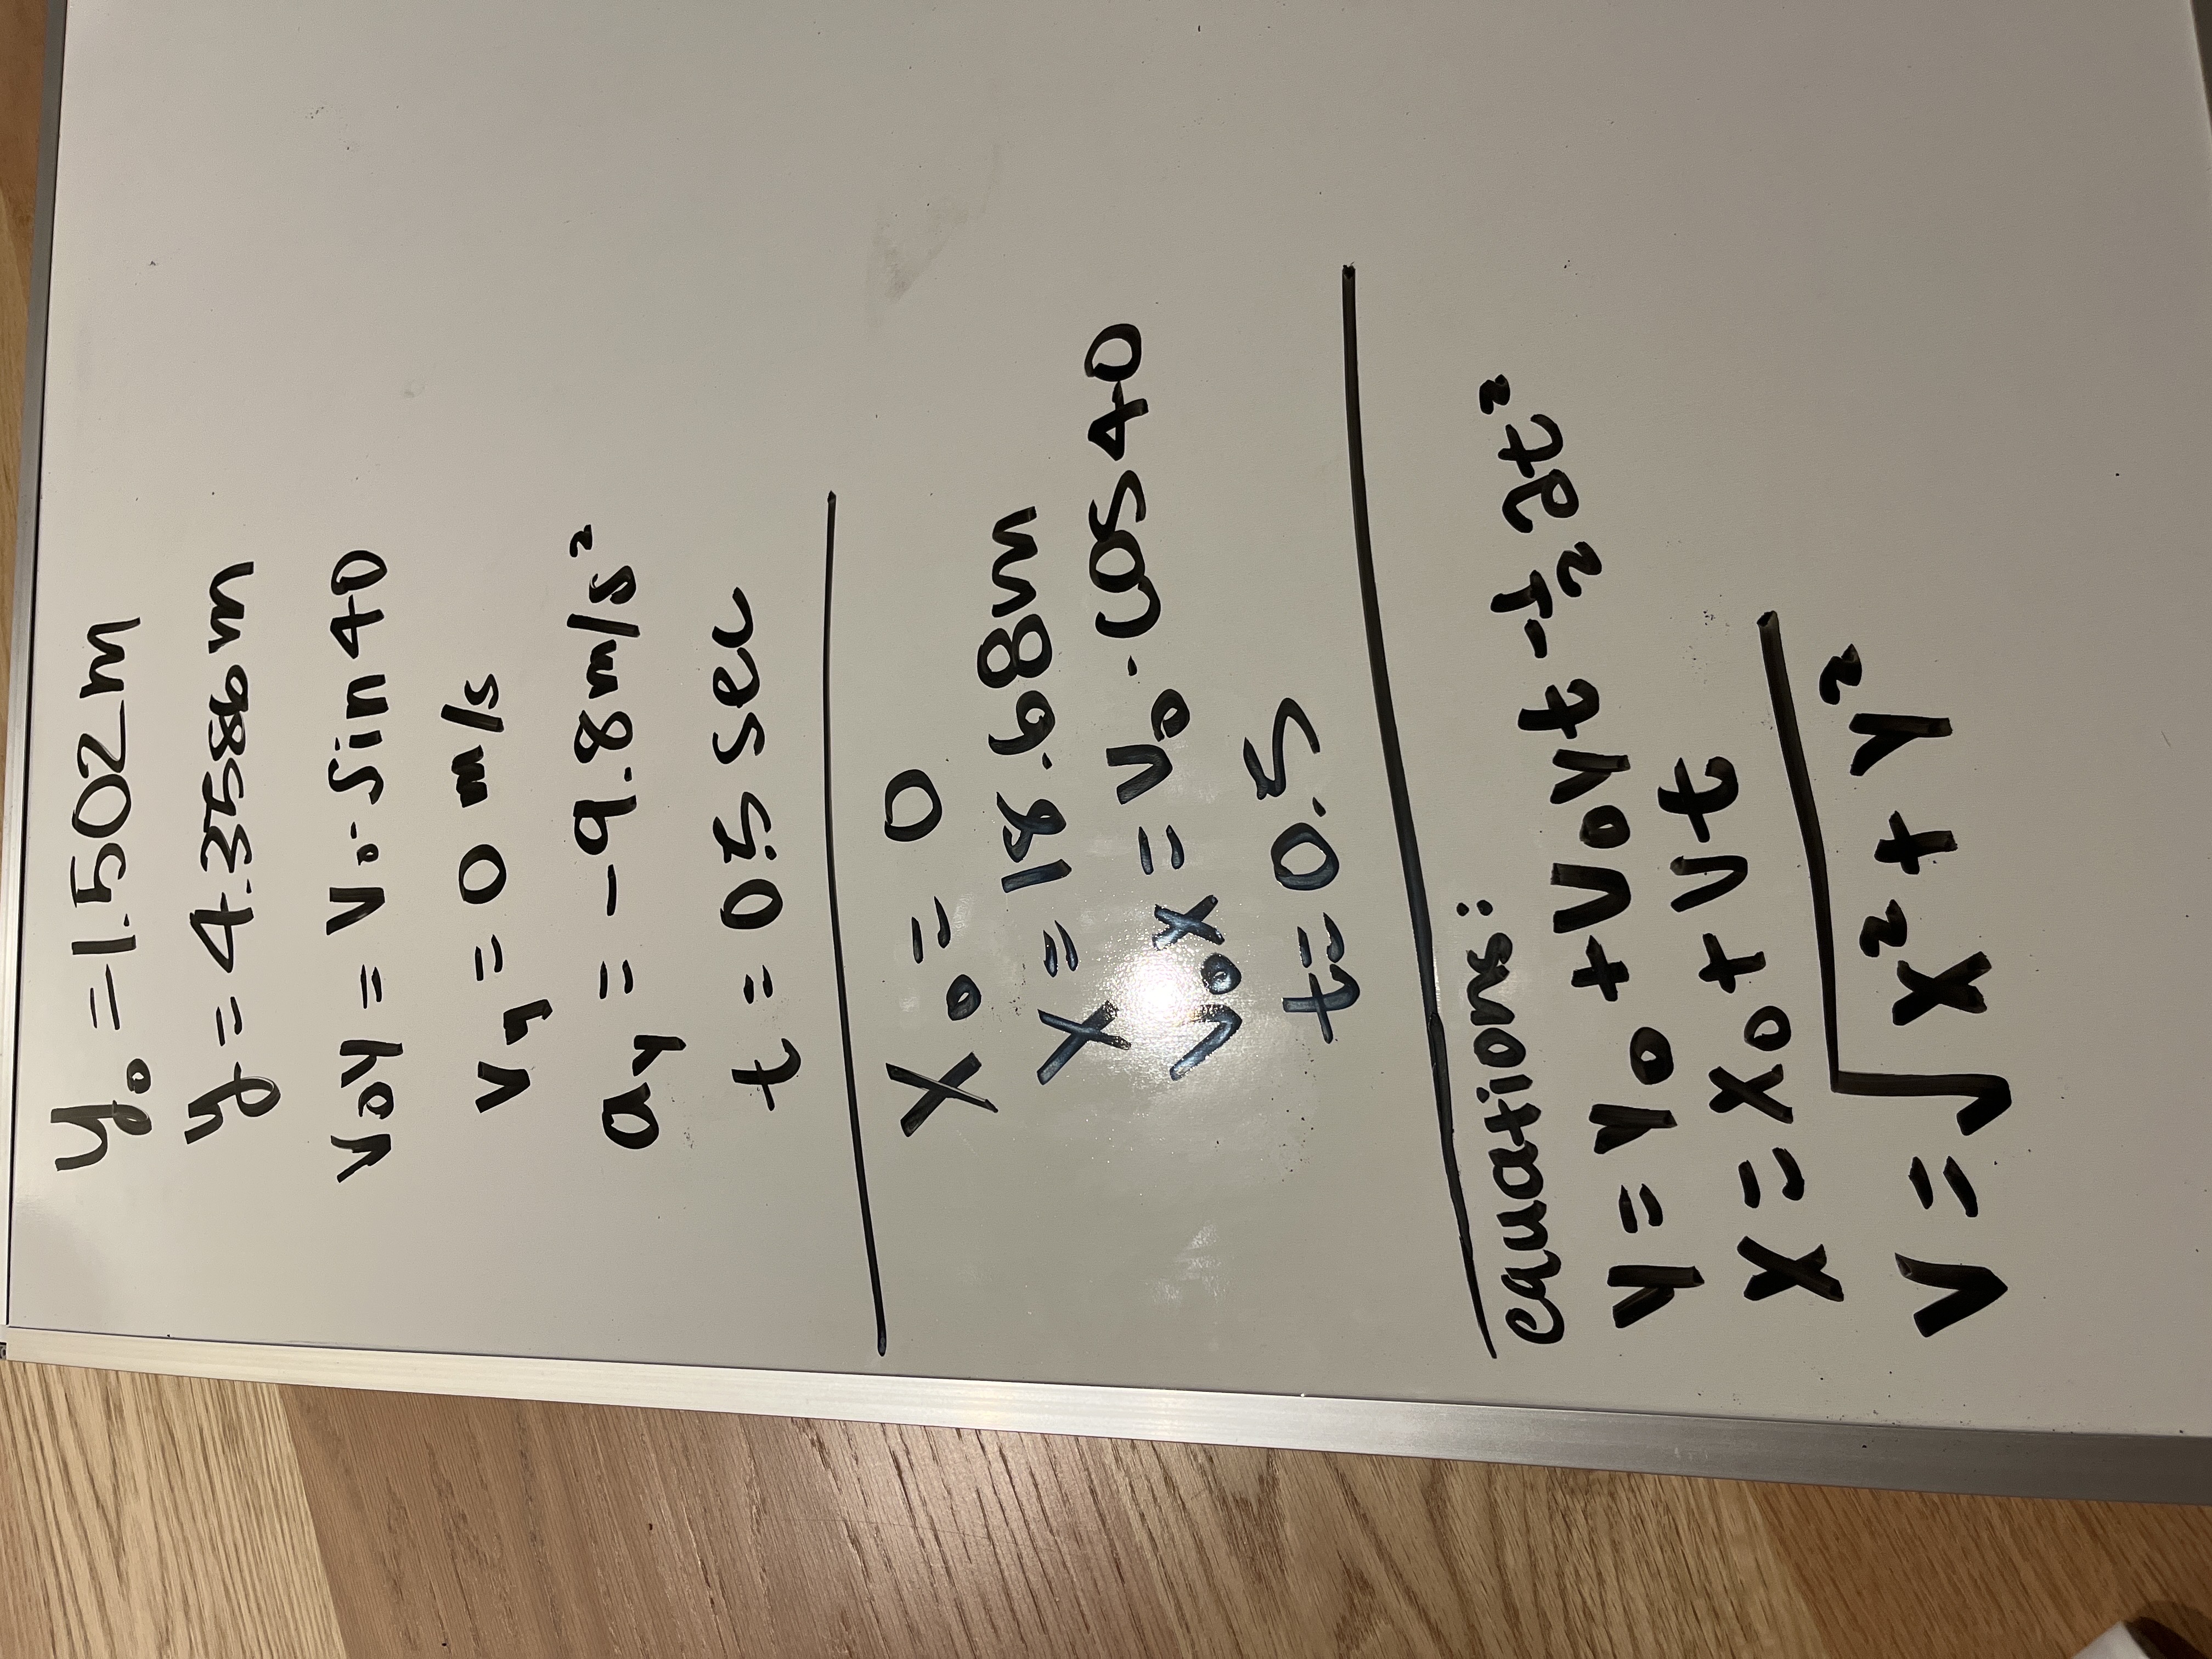 y₀ = 1.502m
y = 4.3586m
v₀y = v₀ · sin 40
vy = 0 m/s
ay = -9.8m/s²
t = 0.5 sec
x₀ = 0
x = 18.68m
v₀x = v₀ · cos 40
t = 0.5
equations:
y = y₀ + v₀yt - ½at²
x = x₀ + vt
v = √x² + y²